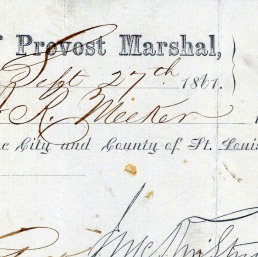 f Provost Marshal,
Sept 27th 1861.
R. Meeker
e City and County of St. Louis